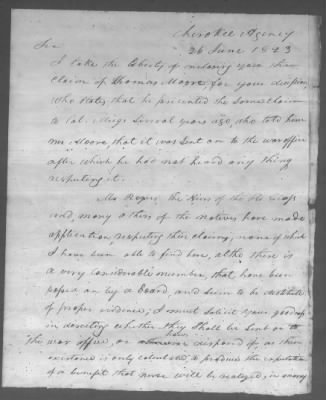 Cherokee Agency
26 June 1823
Sir
I take the liberty of inclosing you the
Claim of Thomas Moore, for your decision,
Who states, that he presented the same claim
to Col. Meigs several years ago, who told him
Mr Moore, that it was sent on to the war office
after which he had not heard any thing
respecting it.
Mr Rogers, the Heirs of the
and, many others of the natives have made
application, respecting their claims, none of which
I have been able to find here, altho there is
a very considerable number, that have been
passed on by a Board, and seem to be destitute
of proper evidence; I must solicit your goodness
in directing whether they shall be sent on to
The war office, or how dispond of, as their
existence is only calculated, to produce the expectation
of a benefit that never will be realized, in many